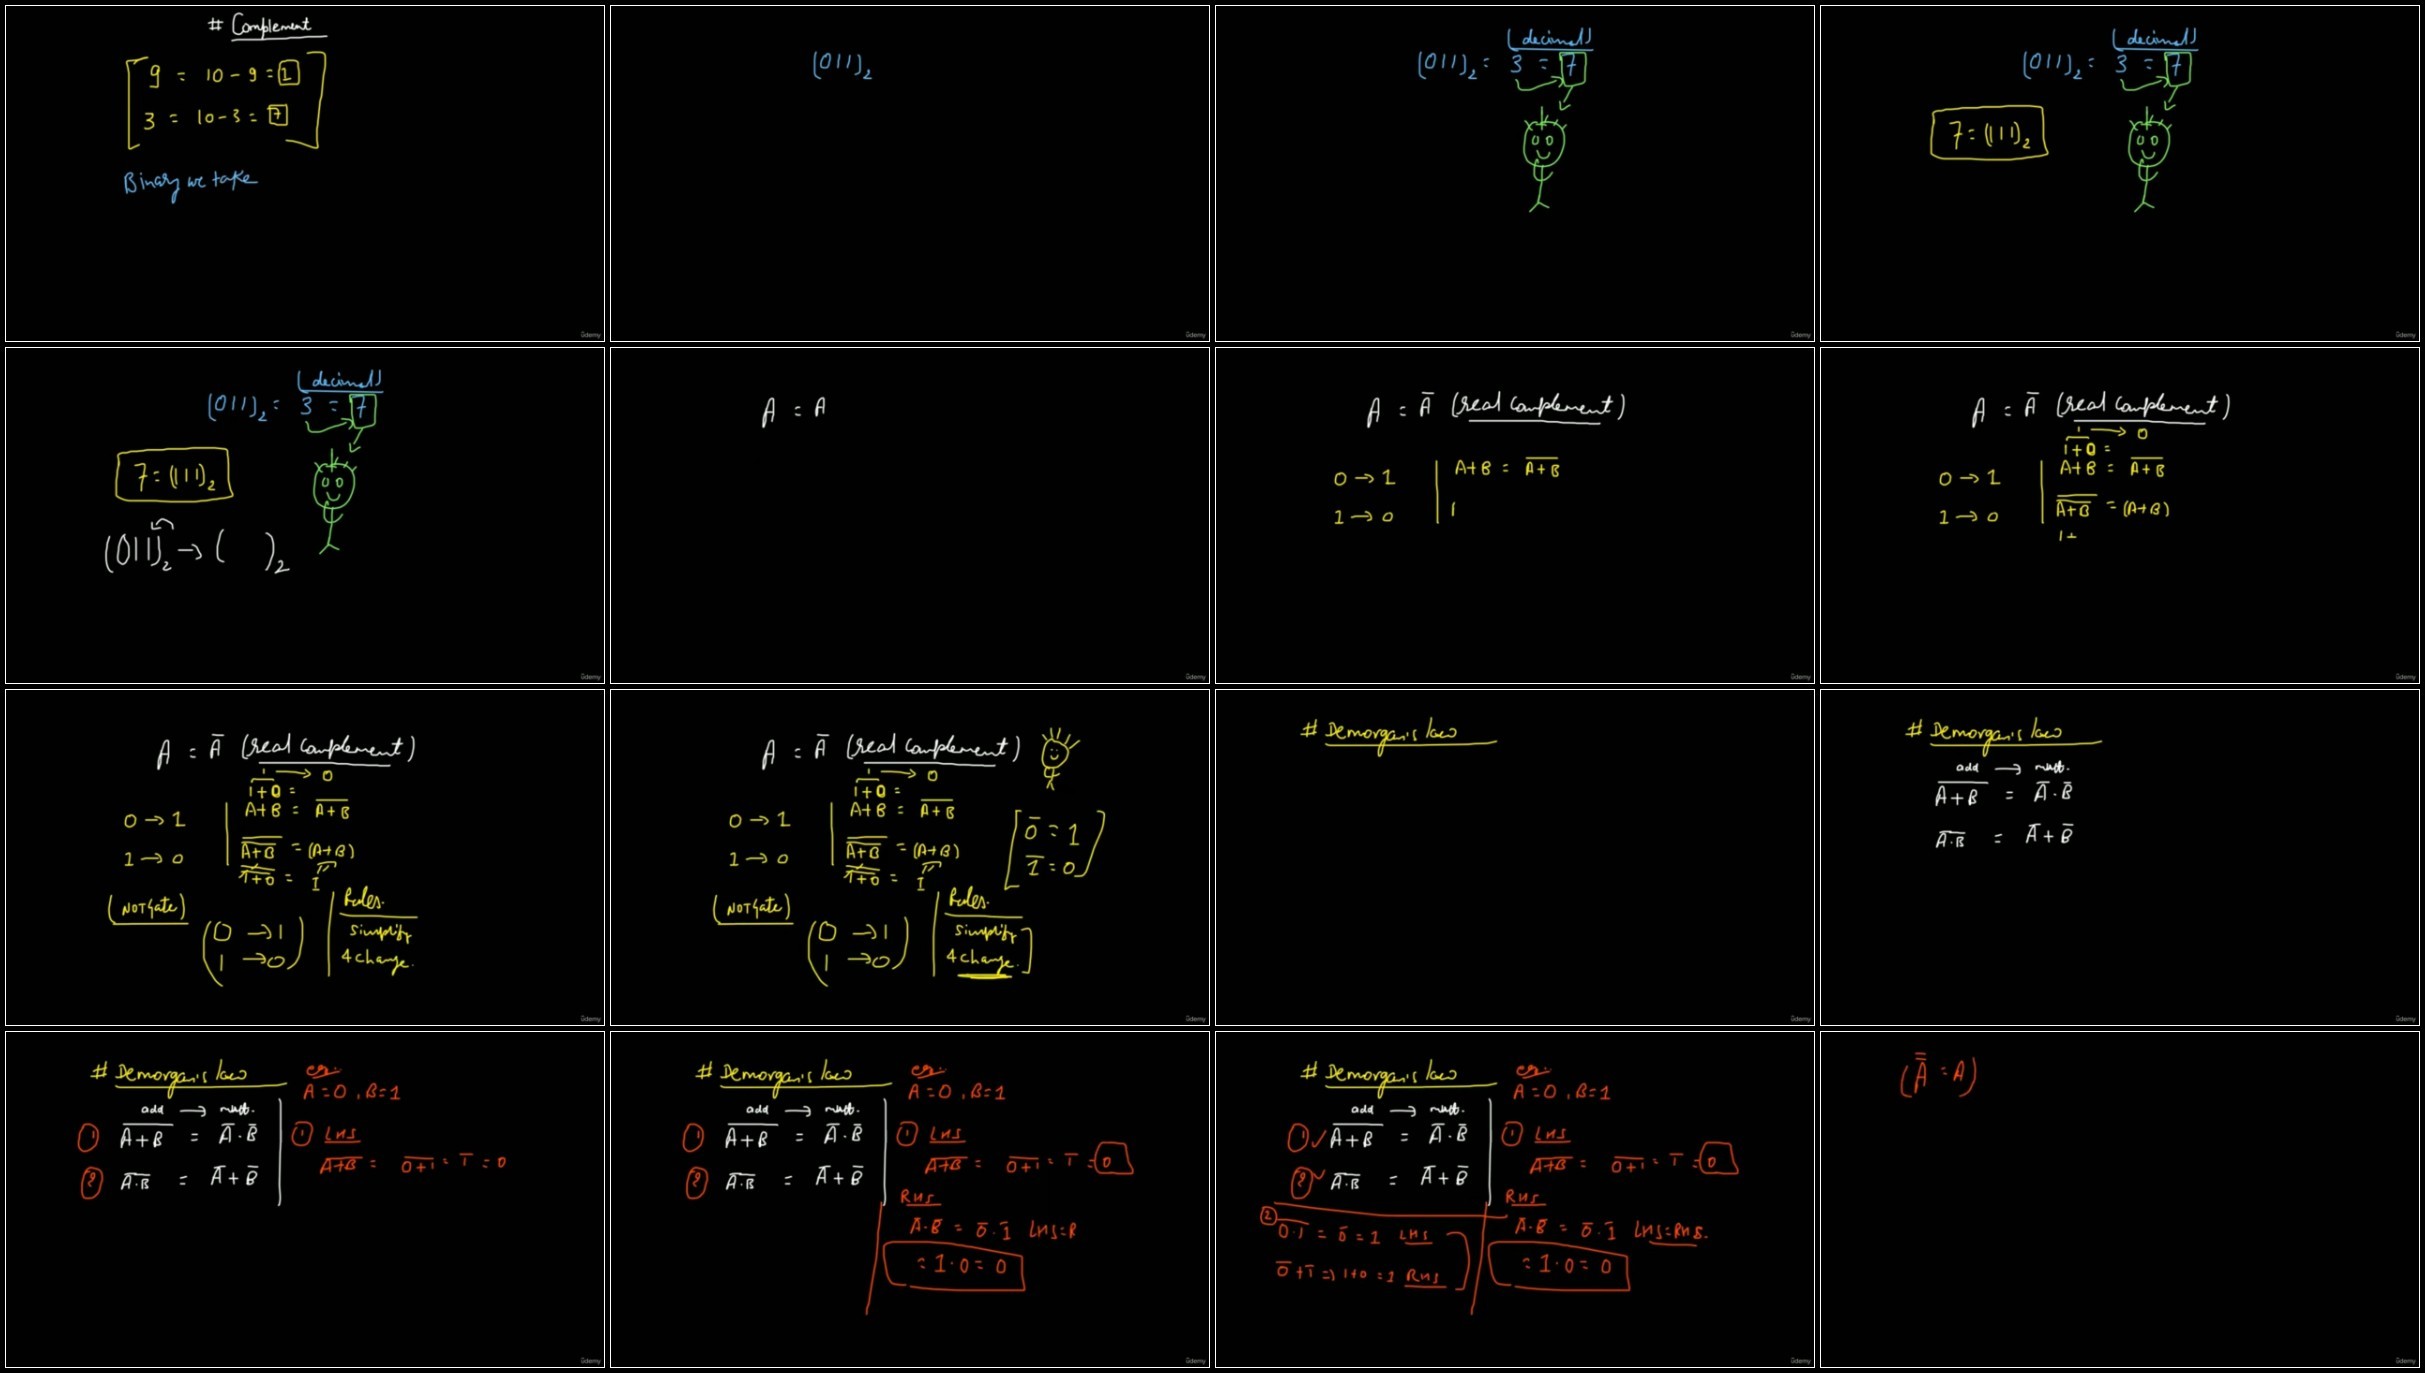 # Complement
9 = 10 - 9 = 1
3 = 10 - 3 = 7
Binary we take
Udemy
(011)₂
Udemy
(decimal)
(011)₂ = 3 = 7
Udemy
(decimal)
(011)₂ = 3 = 7
7 = (111)₂
Udemy
(decimal)
(011)₂ = 3 = 7
7 = (111)₂
(011)₂ → (   )₂
Udemy
A = A
Udemy
A = A̅ (real complement)
0 → 1
A+B = A̅+̅B̅
1 → 0
1
Udemy
A = A̅ (real complement)
1 → 0
1+0 =
0 → 1
A+B = A̅+̅B̅
1 → 0
A̅+̅B̅ = (A+B)
1+
Udemy
A = A̅ (real complement)
1 → 0
1+0 =
0 → 1
A+B = A̅+̅B̅
1 → 0
A̅+̅B̅ = (A+B)
1̅+̅0̅ = 1
(NOT Gate)
Rules.
0 → 1
Simplify
1 → 0
4 change.
Udemy
A = A̅ (real complement)
1 → 0
1+0 =
0 → 1
A+B = A̅+̅B̅
0̅ = 1
1 → 0
A̅+̅B̅ = (A+B)
1̅ = 0
1̅+̅0̅ = 1
(NOT Gate)
Rules.
0 → 1
Simplify
1 → 0
4 change.
Udemy
# Demorgan's law
Udemy
# Demorgan's law
add → mult.
A̅+̅B̅ = A̅ . B̅
A̅.̅B̅ = A̅ + B̅
Udemy
# Demorgan's law
add → mult.
① A̅+̅B̅ = A̅ . B̅
② A̅.̅B̅ = A̅ + B̅
A = 0 , B = 1
① LHS
A̅+̅B̅ = 0̅+̅1̅ = 1̅ = 0
Udemy
# Demorgan's law
add → mult.
① A̅+̅B̅ = A̅ . B̅
② A̅.̅B̅ = A̅ + B̅
A = 0 , B = 1
① LHS
A̅+̅B̅ = 0̅+̅1̅ = 1̅ = 0
RHS
A̅.B̅ = 0̅.1̅ LHS=R
= 1.0 = 0
Udemy
# Demorgan's law
add → mult.
① ✓ A̅+̅B̅ = A̅ . B̅
② ✓ A̅.̅B̅ = A̅ + B̅
A = 0 , B = 1
① LHS
A̅+̅B̅ = 0̅+̅1̅ = 1̅ = 0
RHS
A̅.B̅ = 0̅.1̅ LHS=RHS.
= 1.0 = 0
② 0̅.̅1̅ = 0̅ = 1 LHS
0̅+1̅ ⇒ 1+0 = 1 RHS
Udemy
(A̿ = A)
Udemy